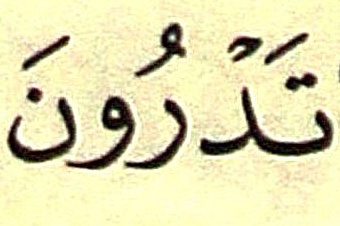 تَدْرُونَ